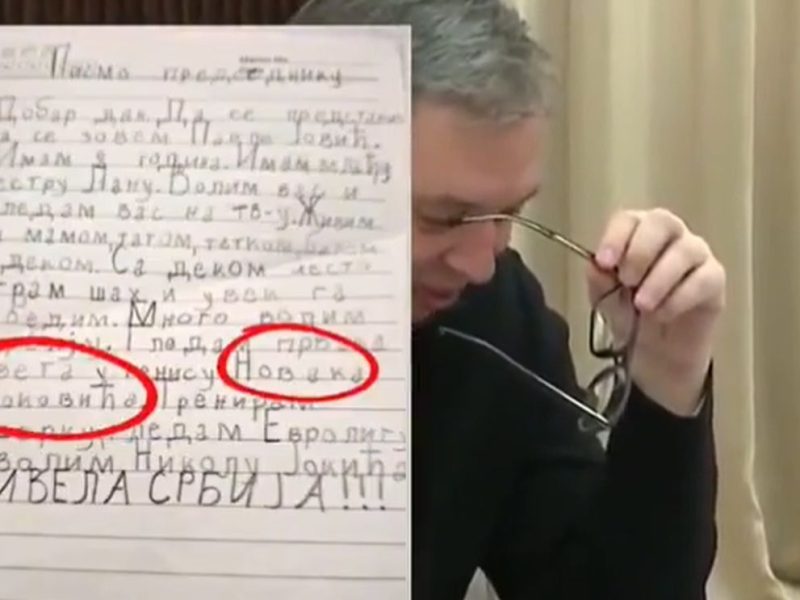 Писмо председнику
Добар дан. Да се представим
да се зовем Павле Јовић.
Имам 8 година. Имам
сестру Лану. Волим вас и
гледам вас на тв-у. Живим
са мамом, татом, тетком, баком
деком. Са деком често
играм шах и увек га
победим. Много волим
Гледам првака
света у тенису Новака
Ђоковића Тренирам
гледам Евролигу
волим Николу Јокића
ИВЕЛА СРБИЈА!!!